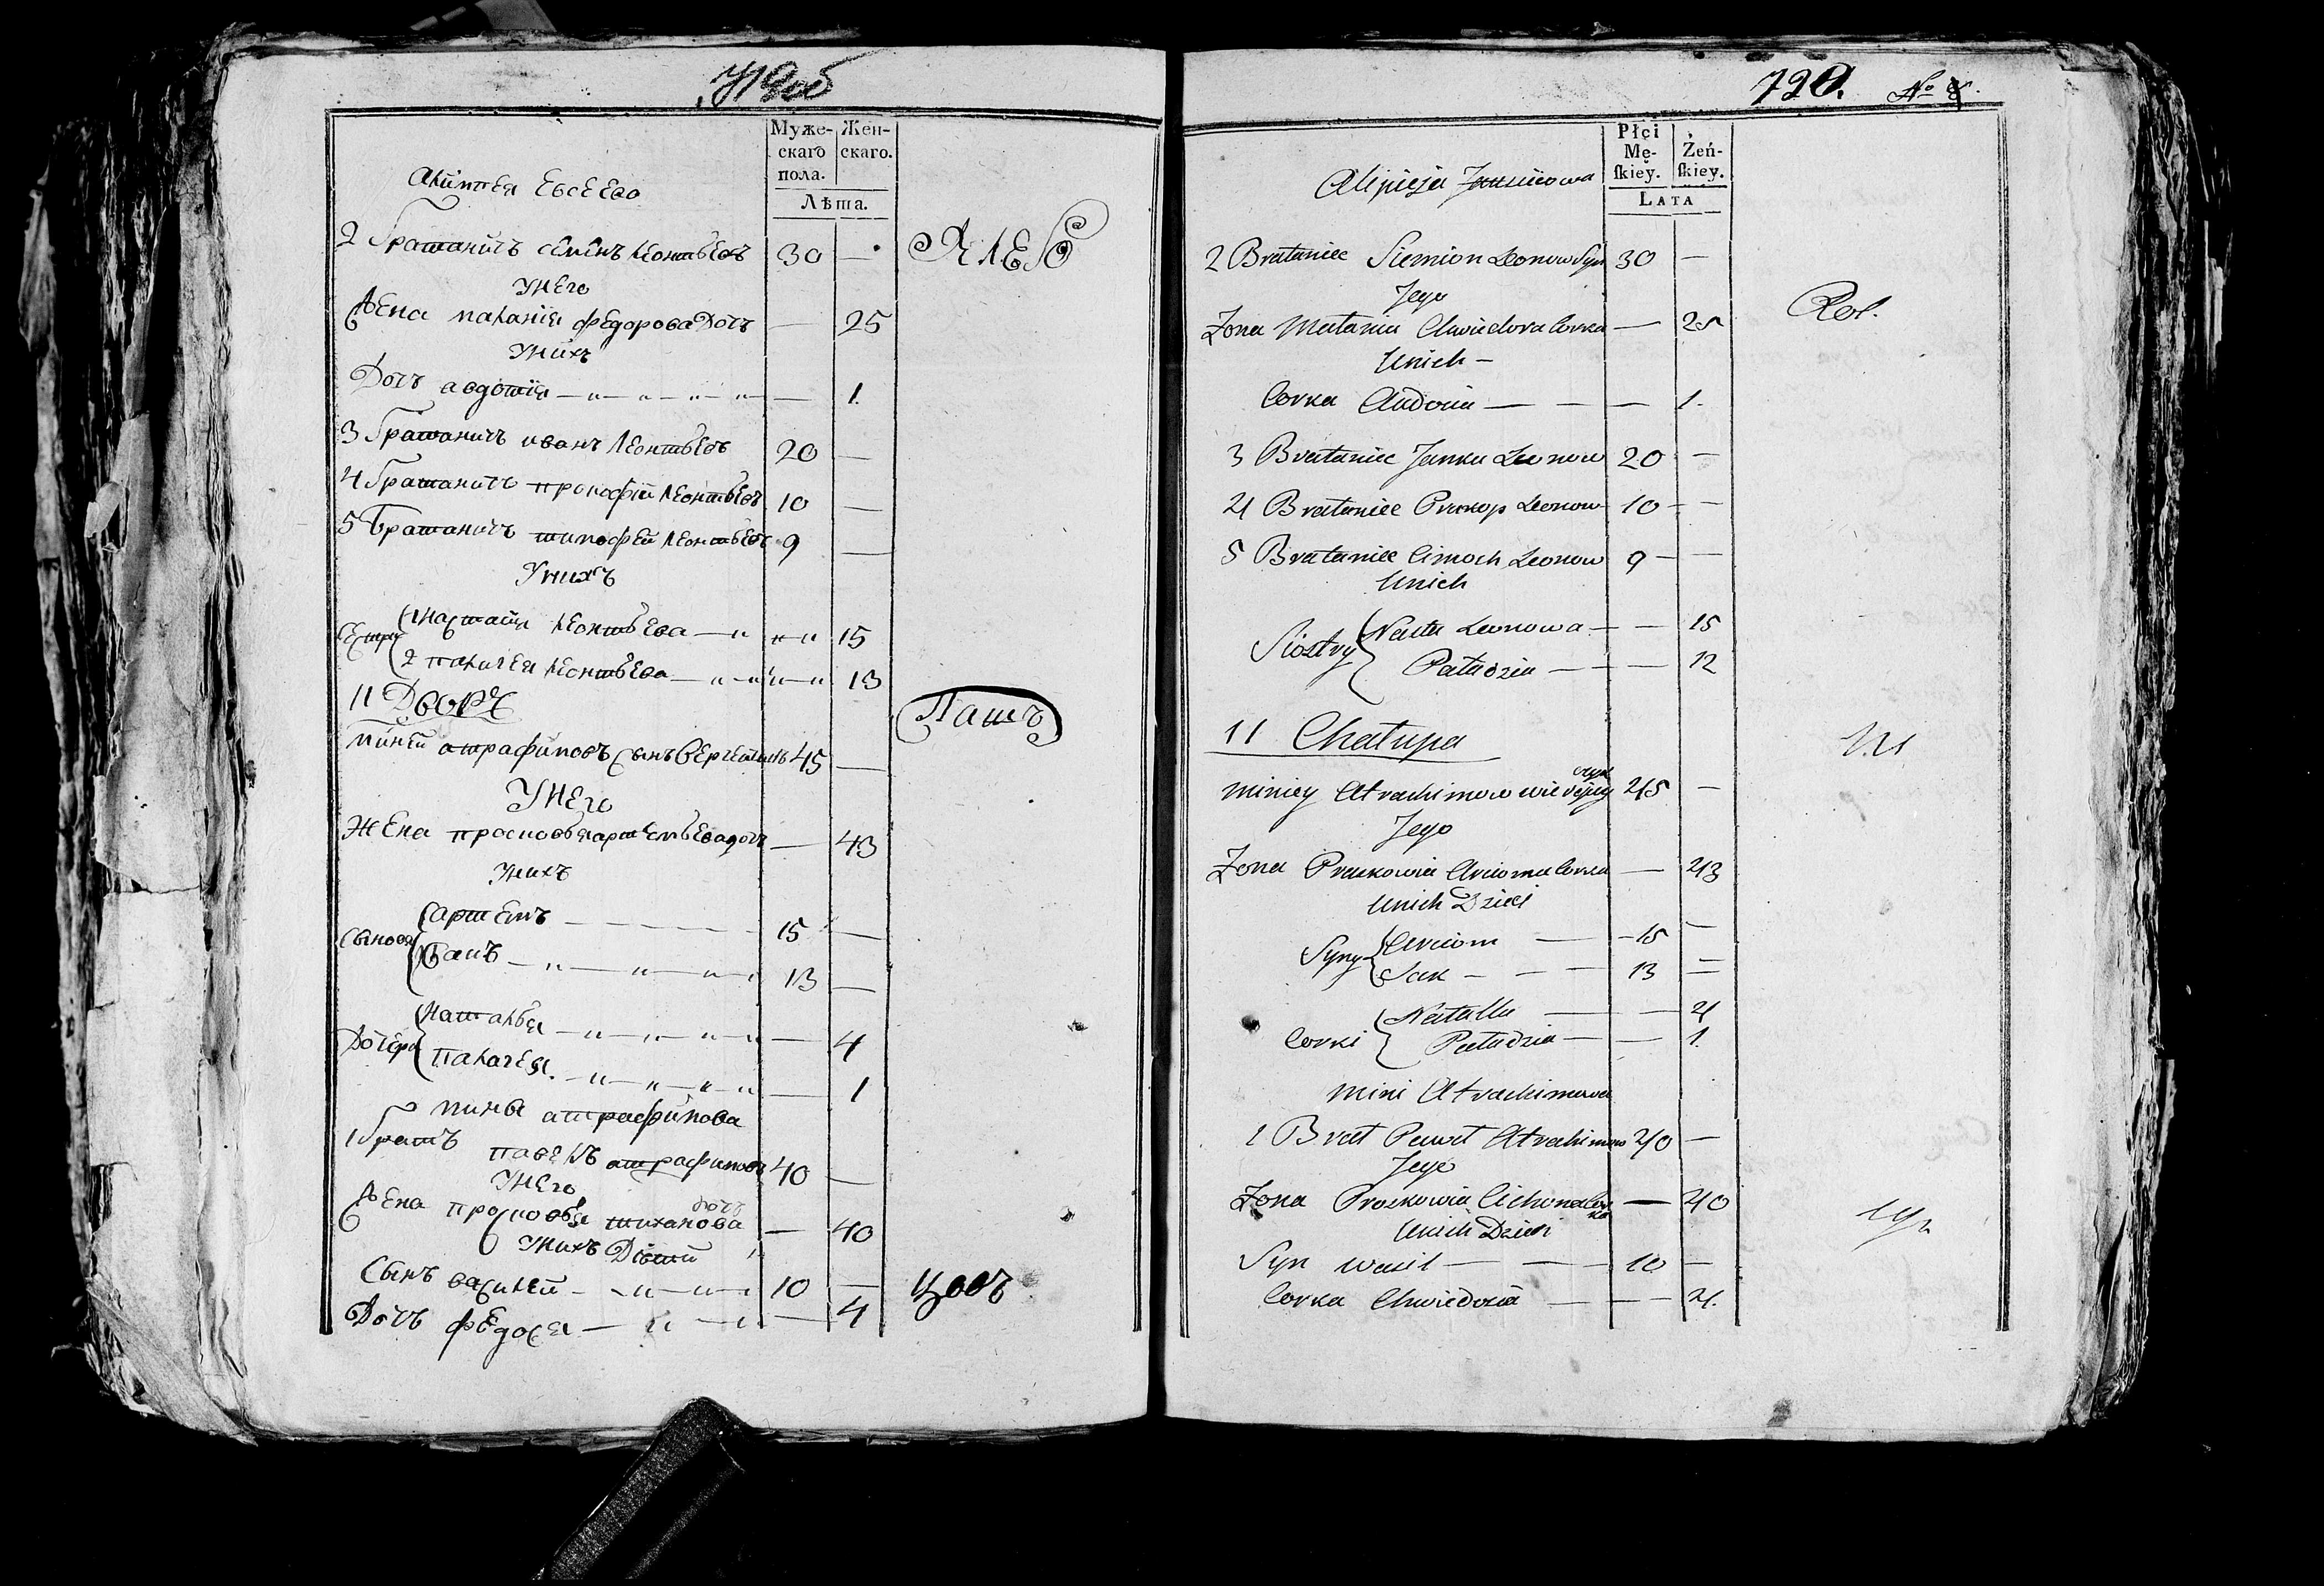 Муже-
скаго
пола.
Жен-
скаго.
Лѣта.
Евсеева
2 Братаничъ семенъ Леонтьевъ 30 —
У него
Жена малания федорова дочь — 25
У нихъ
Дочь авдотия — 1.
3 Братаничъ иванъ Леонтьевъ 20 —
4 Братаничъ прокофий Леонтьевъ 10 —
5 Братаничъ тимофей Леонтьевъ 9 —
У нихъ
Сестры 1 настасья Леонтьева — 15
2 палагея Леонтьева — 13
11 Дворъ
миней атрафимовъ сынъ 45 —
У него
Жена прасковья артемьева дочь — 43
У нихъ
Сыновя артемъ 15 —
13 —
Дочери наталья — 4
палагея — 1
мины атрафимова
1 братъ павелъ атрафимовъ 40 —
У него
Жена прасковья тиханова дочь — 40
У нихъ Дѣтей
Сынъ василей 10 —
Дочь федосья — 4
720. №
Płci
Mę-
ſkiey.
Żeń-
ſkiey.
LATA
2 Brataniec Siemion Leonow Syn 30 —
Jego
Zona Matania Chwiedora Corka — 25
Unich —
Corka Audocia — 1.
3 Brataniec Janka Leonow 20 —
4 Brataniec Prokop Leonow 10 —
5 Brataniec Cimoch Leonow 9 —
Unich
Siostry Nasta Leonowa — 15
Paładzia — 12
11 Chałupa
miniey Atrachimow 45 —
Jego
Zona Praskowia Arcioma Corka — 43
Unich Dzieci
Syny Arciom 15 —
Sak 13 —
Corki Natalla — 4
Paładzia — 1.
mini Atrachimowa
1 Brat Paweł Atrachimow 40 —
Jego
Zona Proskowia Cichona Corka — 40
Unich Dzieci
Syn wasil 10 —
Corka Chwiedosia — 4.